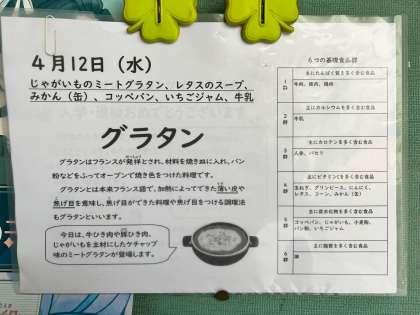 4月12日（水）
じゃがいものミートグラタン、レタスのスープ、
みかん（缶）、コッペパン、いちごジャム、牛乳
グラタン
グラタンはフランスが発祥とされ、材料を焼き皿に入れ、パン
粉などをふってオーブンで焼き色をつけた料理です。
グラタンとは本来フランス語で、加熱によってできた薄い皮や
焦げ目を意味し、焦げ目ができた料理や焦げ目をつける調理法
もグラタンといいます。
今日は、牛ひき肉や豚ひき肉、
じゃがいもを主材にしたケチャップ
味のミートグラタンが登場します。
6つの基礎食品群
主にたんぱく質を多く含む食品
1群
牛肉、豚肉、鶏肉
主にカルシウムを多く含む食品
2群
牛乳
主にカロテンを多く含む食品
3群
人参、パセリ
主にビタミンCを多く含む食品
4群
玉ねぎ、グリンピース、にんにく、
レタス、コーン、みかん（缶）
主に炭水化物を多く含む食品
5群
コッペパン、じゃがいも、小麦粉、
パン粉、いちごジャム
主に脂質を多く含む食品
6群
油